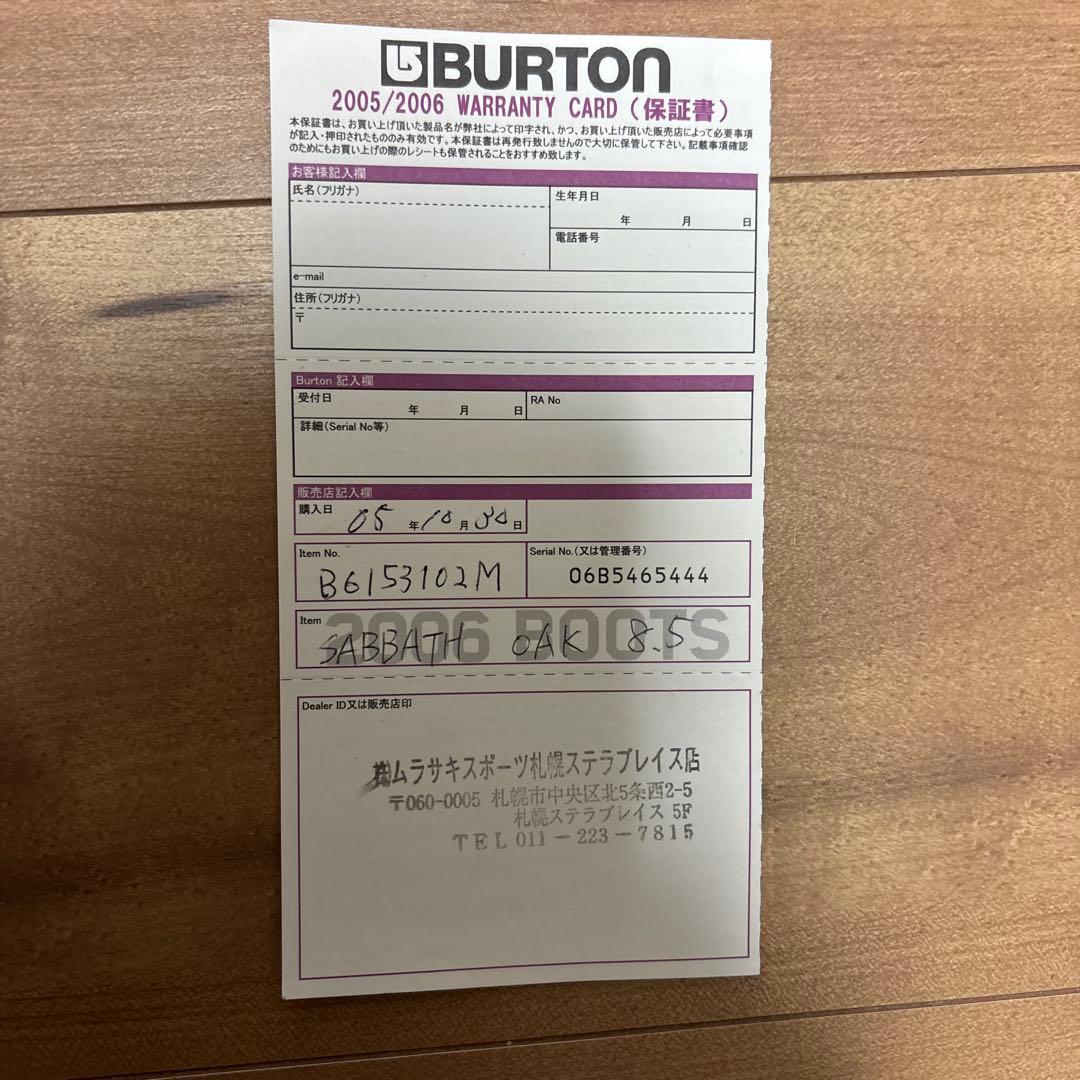 BURTON
2005/2006 WARRANTY CARD (保証書)
本保証書は、お買い上げ頂いた製品名が弊社によって印字され、かつ、お買い上げ頂いた販売店によって必要事項
が記入・押印されたもののみ有効です。本保証書は再発行致しませんので大切に保管して下さい。記載事項確認
のためにもお買い上げの際のレシートも保管されることをおすすめ致します。
お客様記入欄
氏名(フリガナ)
生年月日
年 月 日
電話番号
e-mail
住所(フリガナ)
〒
Burton 記入欄
受付日
年 月 日
RA No
詳細(Serial No等)
販売店記入欄
購入日 05 年 10 月 30 日
Item No.
B6153102M
Serial No.(又は管理番号)
06B5465444
Item
2006 BOOTS
SABBATH OAK 8.5
Dealer ID又は販売店印
㈱ムラサキスポーツ札幌ステラプレイス店
〒060-0005 札幌市中央区北5条西2-5
札幌ステラプレイス 5F
TEL 011-223-7815